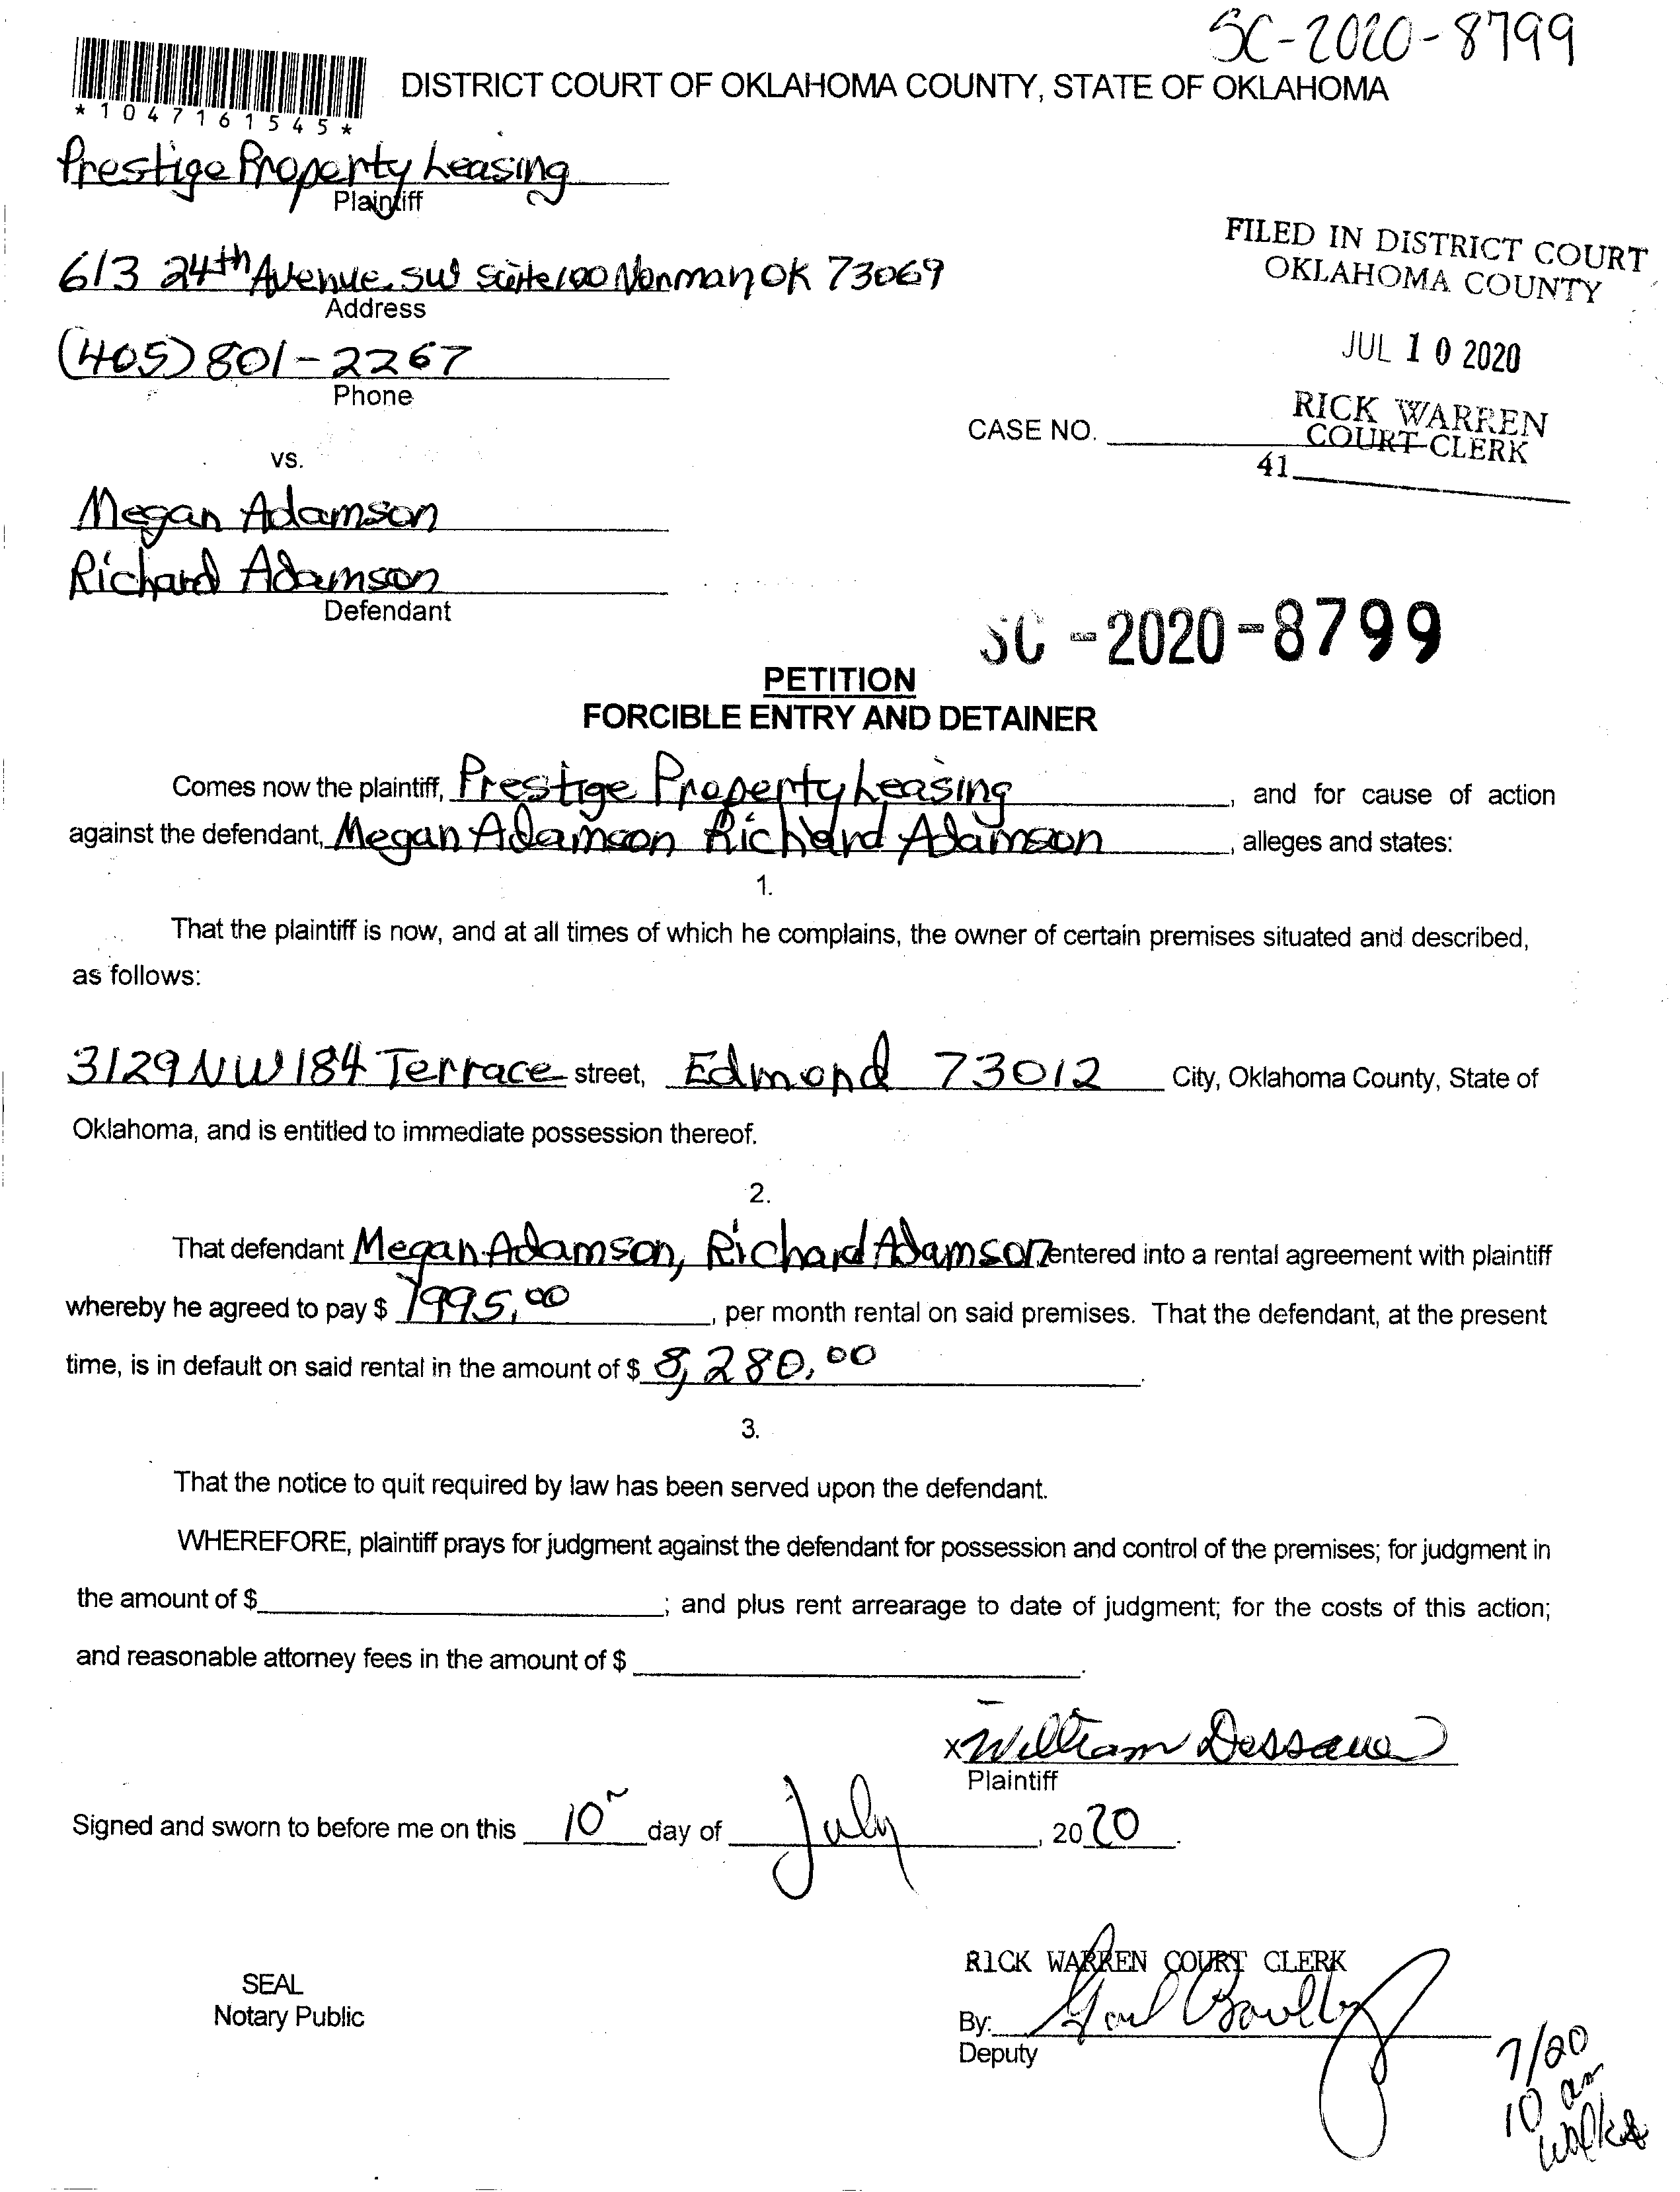 SC-2020-8799
*1047161545*
DISTRICT COURT OF OKLAHOMA COUNTY, STATE OF OKLAHOMA
Prestige Property Leasing
Plaintiff
613 24th Avenue SW Suite 100 Norman OK 73069
Address
(405) 801-2267
Phone
FILED IN DISTRICT COURT
OKLAHOMA COUNTY
JUL 10 2020
RICK WARREN
COURT CLERK
41
CASE NO.
vs.
Megan Adamson
Richard Adamson
Defendant
SC-2020-8799
PETITION
FORCIBLE ENTRY AND DETAINER
Comes now the plaintiff, Prestige Property Leasing, and for cause of action
against the defendant, Megan Adamson Richard Adamson, alleges and states:
1.
That the plaintiff is now, and at all times of which he complains, the owner of certain premises situated and described,
as follows:
3129 NW 184 Terrace street, Edmond 73012 City, Oklahoma County, State of
Oklahoma, and is entitled to immediate possession thereof.
2.
That defendant Megan Adamson, Richard Adamson entered into a rental agreement with plaintiff
whereby he agreed to pay $ 1995.00, per month rental on said premises. That the defendant, at the present
time, is in default on said rental in the amount of $ 8,280.00.
3.
That the notice to quit required by law has been served upon the defendant.
WHEREFORE, plaintiff prays for judgment against the defendant for possession and control of the premises; for judgment in
the amount of $; and plus rent arrearage to date of judgment; for the costs of this action;
and reasonable attorney fees in the amount of $.
x William
Plaintiff
Signed and sworn to before me on this 10 day of July, 2020.
SEAL
Notary Public
RICK WARREN COURT CLERK
By:
Deputy
7/20
10 am